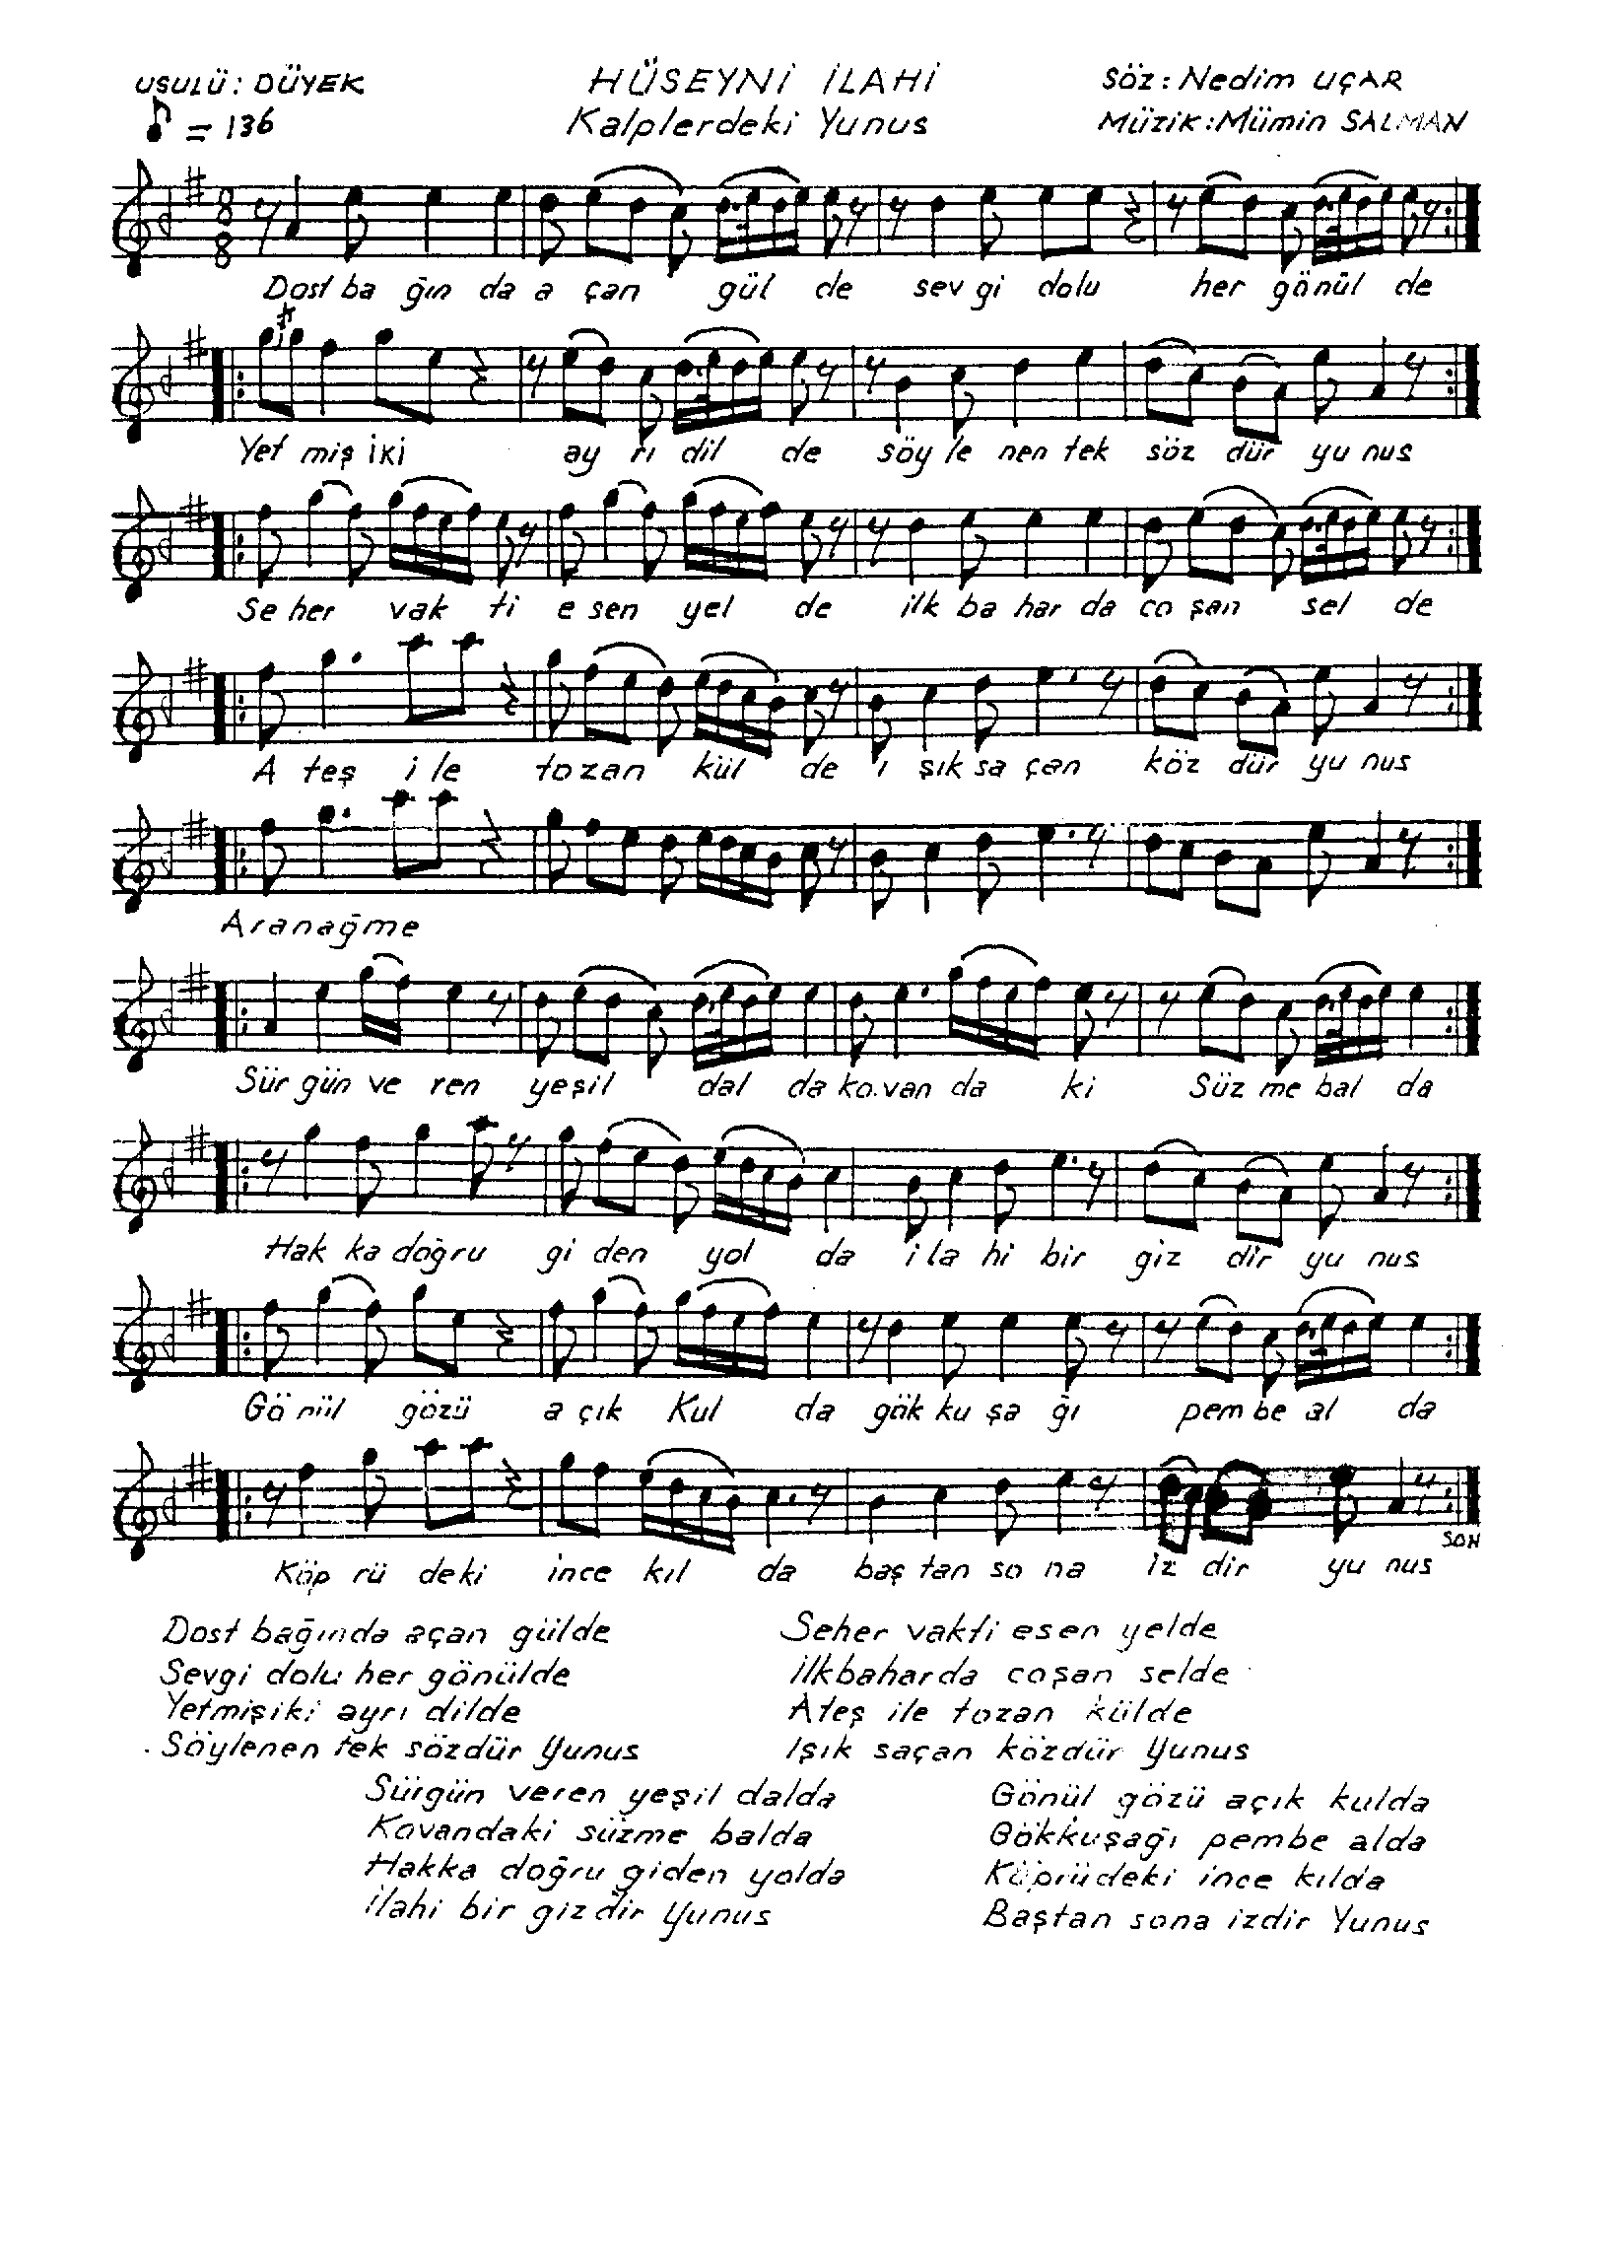 USULÜ: DÜYEK HÜSEYNİ İLAHİ Söz: Nedim UÇAR
♪ = 136 Kalplerdeki Yunus Müzik: Mümin SALMAN
8 8
Dost ba ğın da a çan gül de sev gi dolu her gönül de
Yet miş iki ay rı dil de söy le nen tek söz dür yu nus
Se her vak ti e sen yel de ilk ba har da co şan sel de
A teş i le tozan kül de ı şık sa çan köz dür yu nus
Aranağme
Sür gün ve ren yeşil dal da ko.van da ki Süz me bal da
Hak ka doğru gi den yol da i la hi bir giz dir yu nus
Gö nül gözü a çık Kul da gök ku şa ğı pem be al da
SON
Köp rü deki ince kıl da baş tan so na iz dir yu nus
Dost bağında açan gülde
Sevgi dolu her gönülde
Yetmişiki ayrı dilde
Söylenen tek sözdür Yunus
Seher vakti esen yelde
İlkbaharda coşan selde
Ateş ile tozan külde
Işık saçan közdür Yunus
Sürgün veren yeşil dalda
Kovandaki süzme balda
Hakka doğru giden yolda
İlahi bir gizdir Yunus
Gönül gözü açık kulda
Gökkuşağı pembe alda
Köprüdeki ince kılda
Baştan sona izdir Yunus